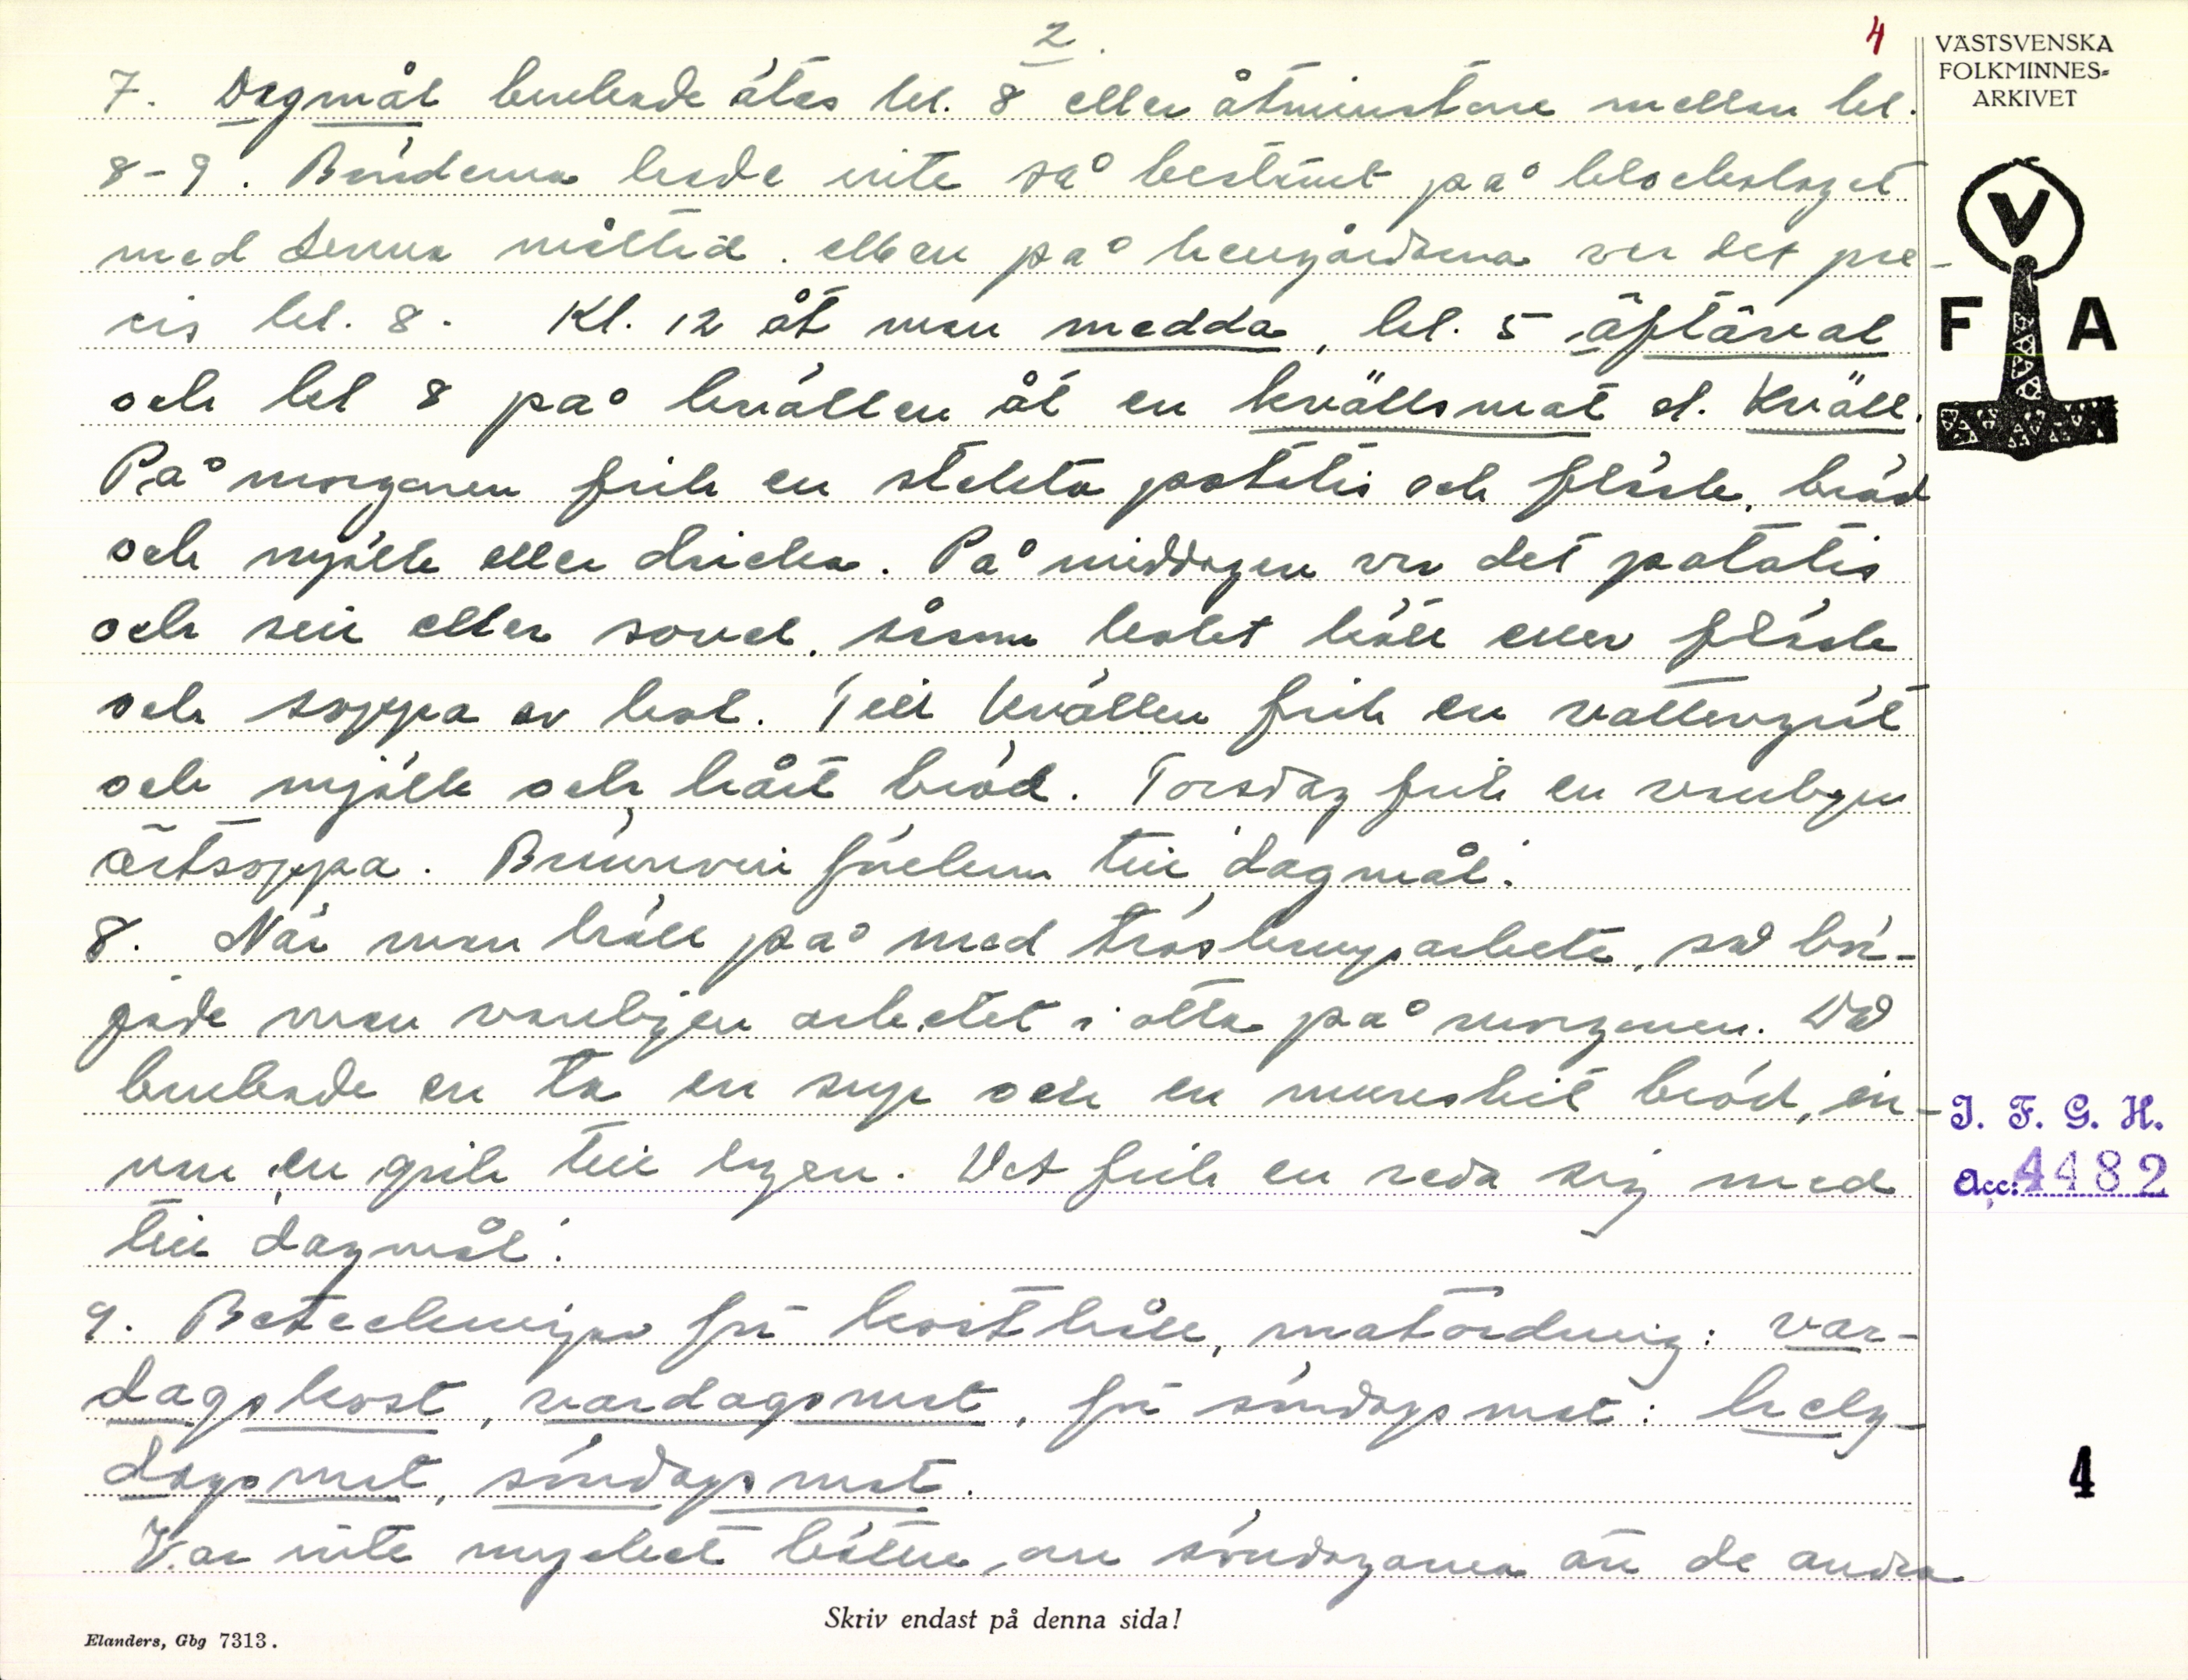 2.
4
VÄSTSVENSKA
FOLKMINNES-
ARKIVET
V
F A
7. Dagmål brukade ätas kl. 8 eller åtminstone mellan kl.
8-9. Bönderna hade inte så bestämt på klockslaget
med denna måltid. Men på herrgårdarna var det pre-
cis kl. 8. Kl. 12 åt man medda, kl. 5 äftärval
och kl 8 på kvällen åt en kvällsmat el. Kväll.
På morgonen fick en stekta potatis och fläsk, bröd
och mjölk eller dricka. På middagen var det potatis
och sill eller sovel, såsom kokt kött eller fläsk
och soppa av kål. Till kvällen fick en vattengröt
och mjölk och hårt bröd. Torsdag fick en vanligen
ärtsoppa. Brännvin förekom till 'dagmål'.
8. När man höll på med tröskningsarbete, så bör-
jade man vanligen arbetet i otta på morgonen. Då
brukade en ta en sup och en munsbit bröd, in-
nan en gick till logen. Det fick en reda sig med
till 'dagmål'.
9. Beteckningar för kosthåll, matordning: var-
dagskost, vardagsmat, för söndagsmat: helg-
dagsmat, söndagsmat.
Var inte mycket bättre om söndagarna än de andra
I. F. G. H.
Acc: 4482
4
Skriv endast på denna sida!
Elanders, Gbg 7313.